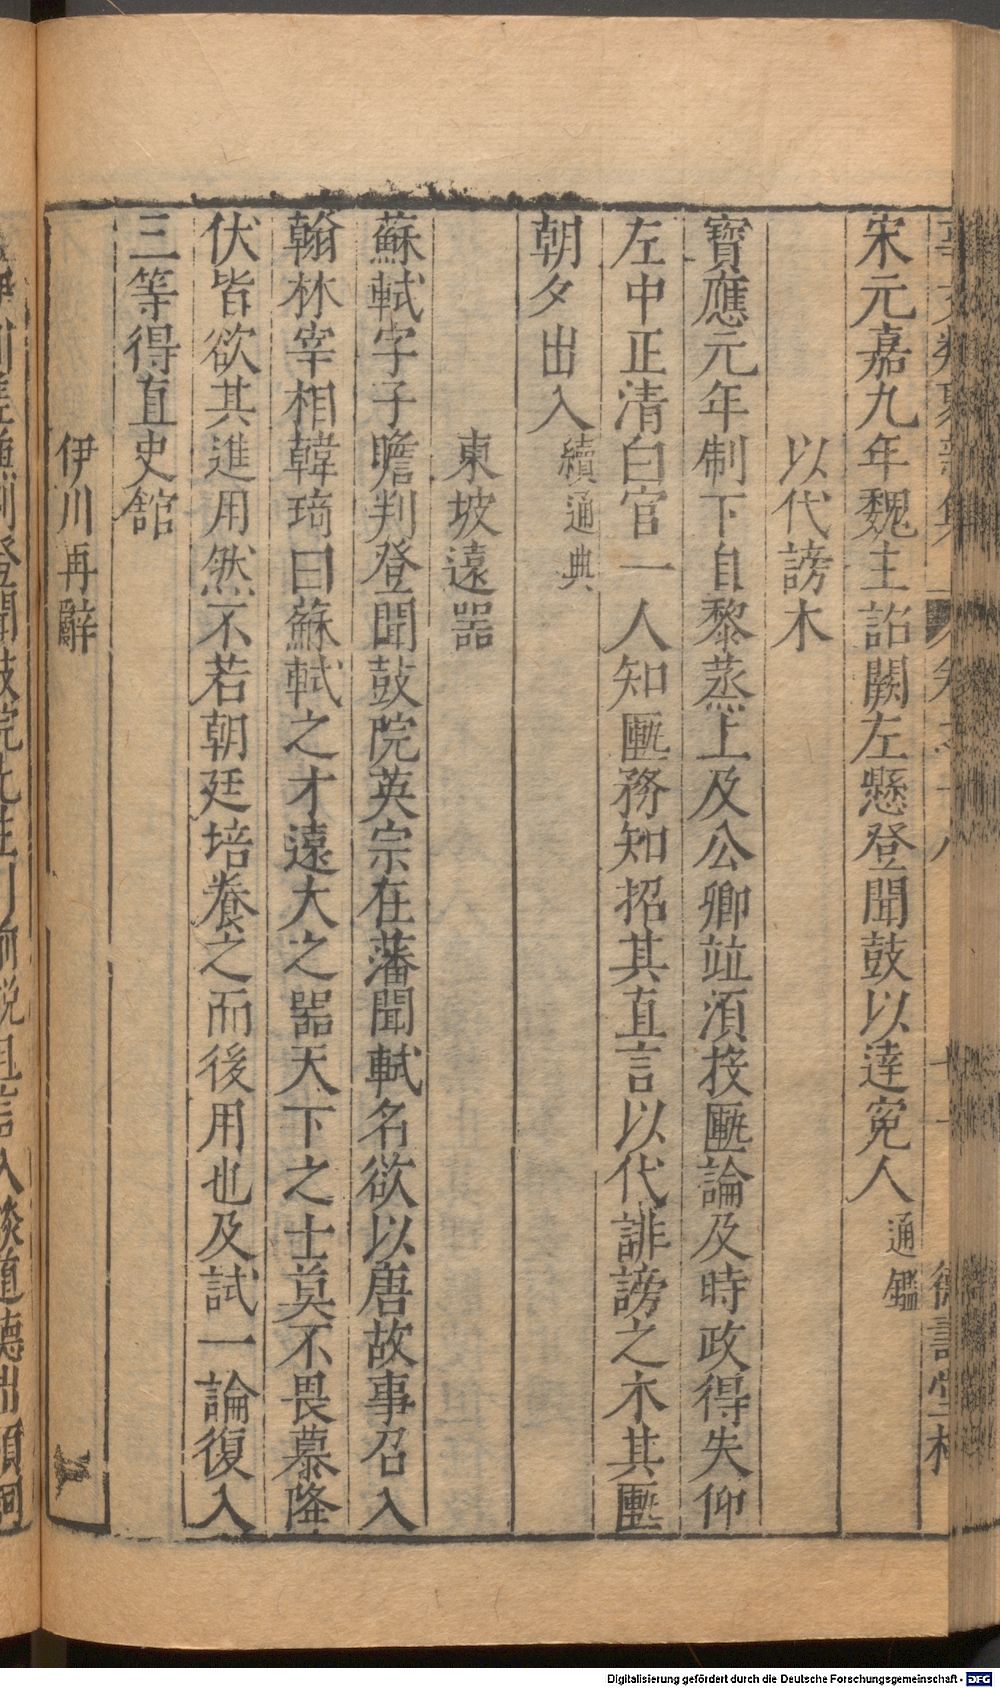 宋元嘉九年魏主詔闕左懸登聞鼓以達寃人通鑑
以代謗木
寶應元年制下自黎蒸上及公卿竝湏投匭論及時政得失仰
左中正清白官一人知匭務知招其直言以代誹謗之木其匭
朝夕出入續通典
東坡遠器
蘇軾字子瞻判登聞鼓院英宗在藩聞軾名欲以唐故事召入
翰林宰相韓琦曰蘇軾之才遠大之器天下之士莫不畏慕降
伏皆欲其進用然不若朝廷培養之而後用也及試一論復入
三等得直史舘
伊川再辭
Digitalisierung gefördert durch die Deutsche Forschungsgemeinschaft - DFG